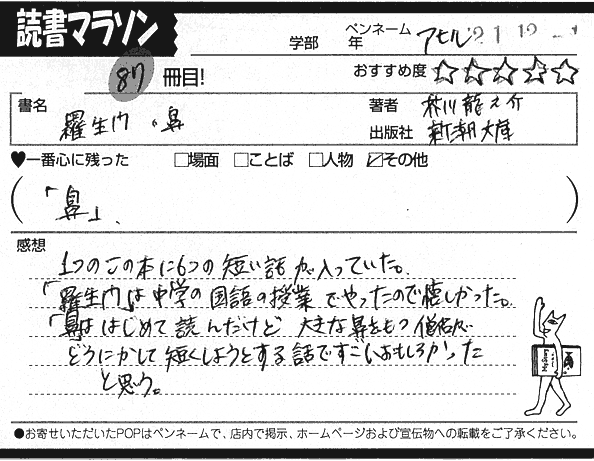 読書マラソン
学部 年 ペンネーム アヒル '21 12
87 冊目! おすすめ度 ☆☆☆☆☆
書名 羅生門・鼻 著者 芥川龍之介
出版社 新潮文庫
♥一番心に残った □場面 □ことば □人物 ☑その他
(「鼻」、)
感想
1つのこの本に6つの短い話が入っていた。
「羅生門」は中学の国語の授業でやったので懐しかった。
「鼻」ははじめて読んだけど大きな鼻をもつ僧が
どうにかして短くしようとする話ですごいおもしろかった
と思う。
●お寄せいただいたPOPはペンネームで、店内で掲示、ホームページおよび宣伝物への転載をご了承ください。